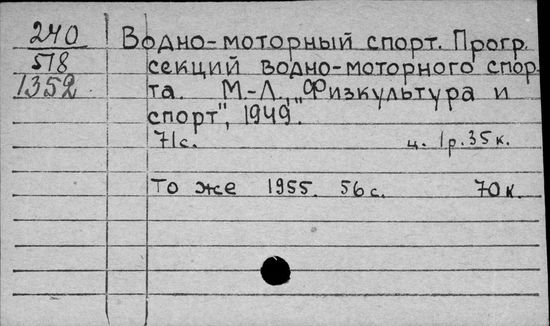 240
518
1352
Водно-моторный спорт. Прогр.
секций водно-моторного спор-
та. М.-Л., „Физкультура и
спорт", 1949.
71с. ц. 1р.35к.
То же 1955. 56с. 70к.